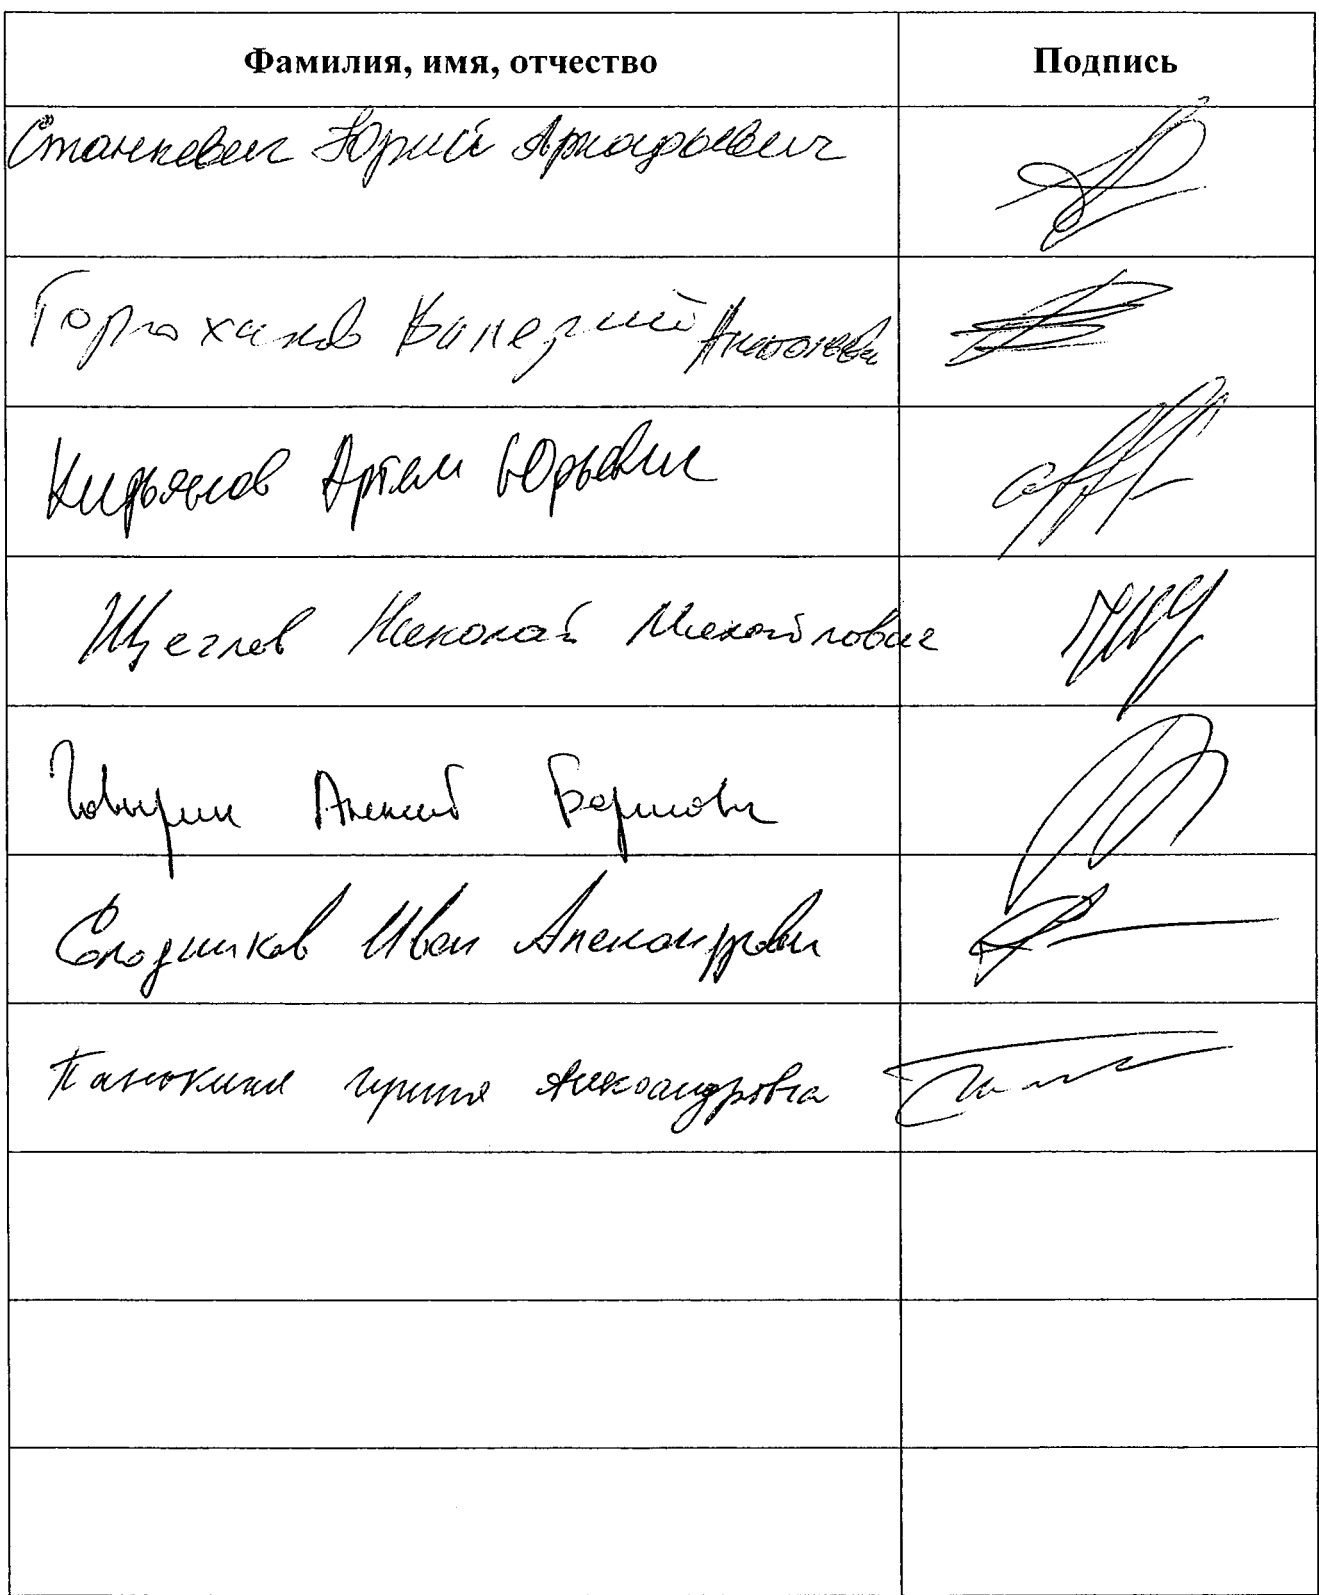 Фамилия, имя, отчество Подпись
Станкевич Юрий Аркадьевич
Горюханов Валерий Анатольеви
Кирьянов Артем Юрьевич
Щеглов Николай Михайлович
Говырин Алексей Борисович
Солодников Иван Александрович
Панюкина Ирина Александровна